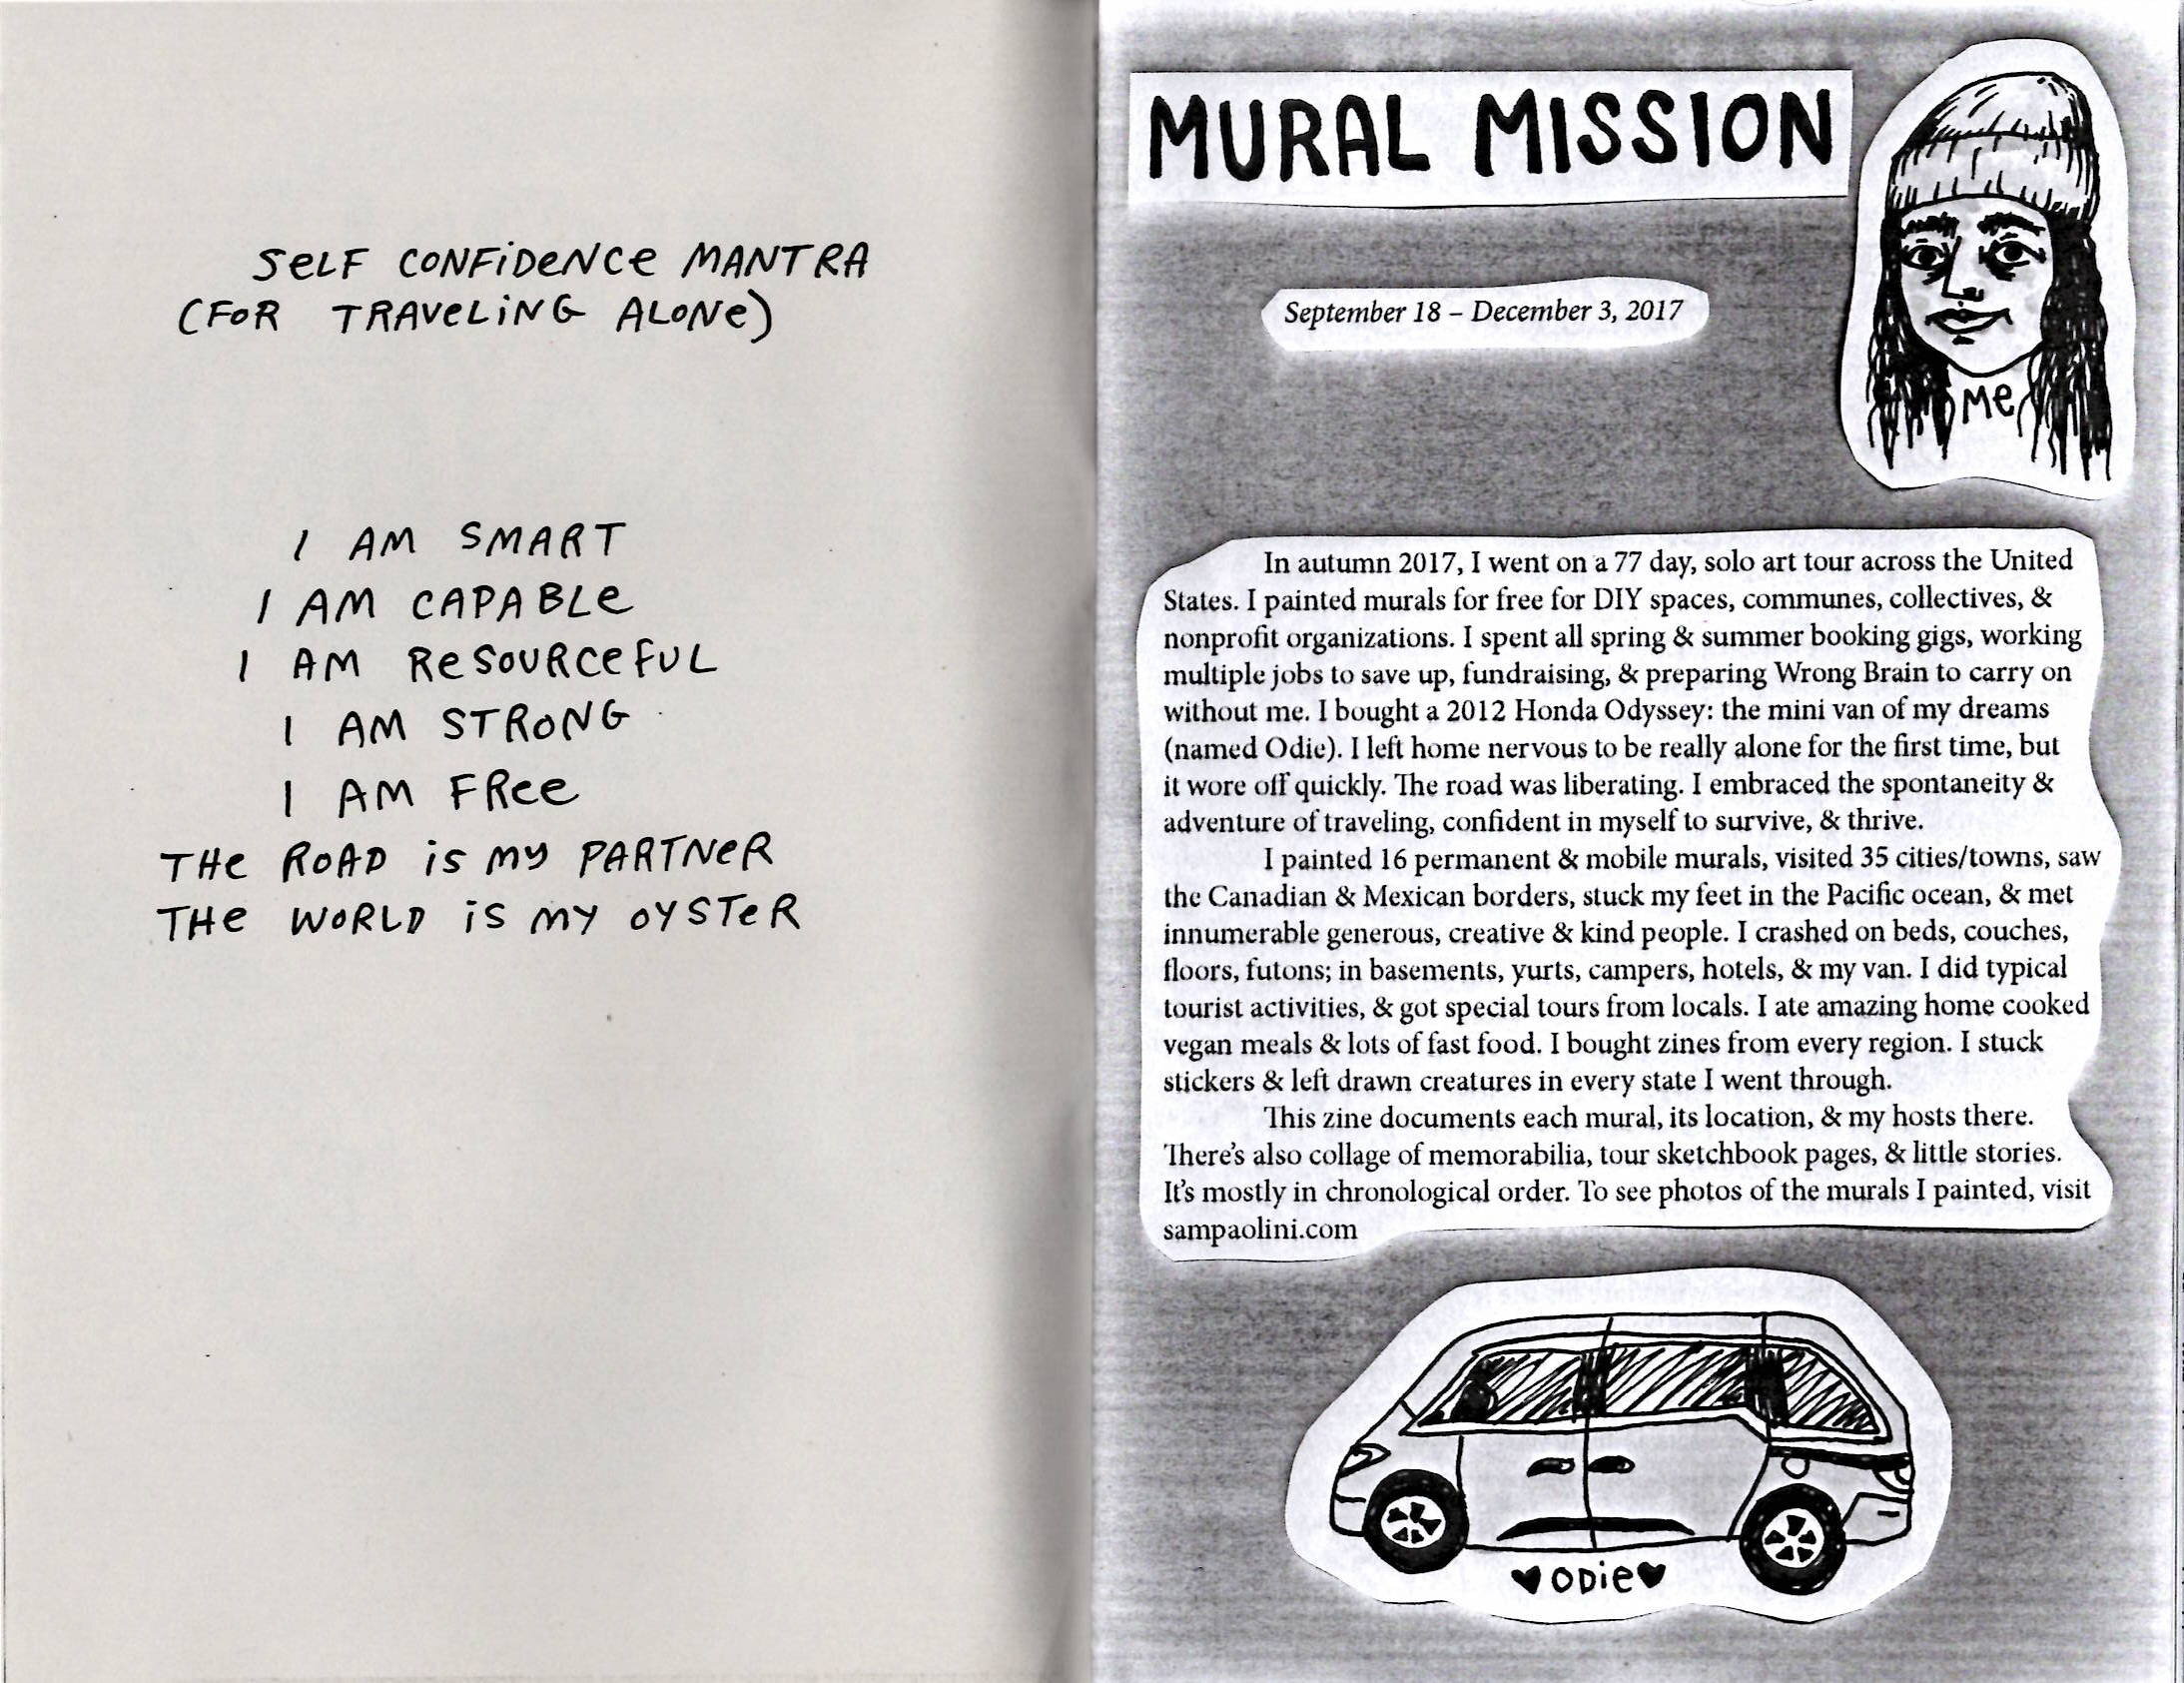 SELF CONFIDENCE MANTRA
(FOR TRAVELING ALONE)
I AM SMART
I AM CAPABLE
I AM RESOURCEFUL
I AM STRONG
I AM FREE
THE ROAD IS MY PARTNER
THE WORLD IS MY OYSTER
MURAL MISSION
September 18 – December 3, 2017
ME
In autumn 2017, I went on a 77 day, solo art tour across the United
States. I painted murals for free for DIY spaces, communes, collectives, &
nonprofit organizations. I spent all spring & summer booking gigs, working
multiple jobs to save up, fundraising, & preparing Wrong Brain to carry on
without me. I bought a 2012 Honda Odyssey: the mini van of my dreams
(named Odie). I left home nervous to be really alone for the first time, but
it wore off quickly. The road was liberating. I embraced the spontaneity &
adventure of traveling, confident in myself to survive, & thrive.
I painted 16 permanent & mobile murals, visited 35 cities/towns, saw
the Canadian & Mexican borders, stuck my feet in the Pacific ocean, & met
innumerable generous, creative & kind people. I crashed on beds, couches,
floors, futons; in basements, yurts, campers, hotels, & my van. I did typical
tourist activities, & got special tours from locals. I ate amazing home cooked
vegan meals & lots of fast food. I bought zines from every region. I stuck
stickers & left drawn creatures in every state I went through.
This zine documents each mural, its location, & my hosts there.
There's also collage of memorabilia, tour sketchbook pages, & little stories.
It's mostly in chronological order. To see photos of the murals I painted, visit
sampaolini.com
♥ODIE♥